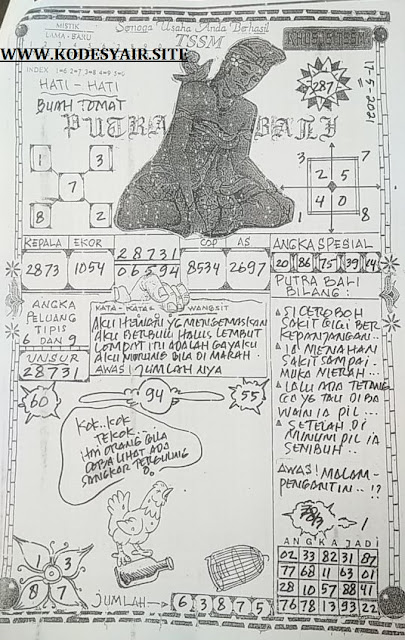 Semoga Usaha Anda Berhasil
MISTIK
LAMA - BARU
TSSM
WWW.KODESYAIR.SITE
INDEX 1=6 2=7 3=8 4=9 5=0
HATI - HATI
BUAH TOMAT
287
17-5-2021
PUTRA BALI
1 3
7
8 2
3 7
2 5
4 0
1 8
KEPALA EKOR
2873 1054
28731
06594
COP AS
8534 2697
ANGKA SPESIAL
20 86 75 39 14
ANGKA
PELUANG
TIPIS
6 DAN 9
UNSUR
28731
KATA - KATA WANGSIT
AKU HEWAN YG MENGEMASKAN
AKU BERBULU HALUS LEMBUT
LOMPAT ITU ADALAH GAYAKU
AKU MURUNG BILA DI MARAH.
AWAS! JUMLAH NYA
PUTRA BALI
BILANG:
SI CEROBOH
SAKIT GIGI BER
KEPANJANGAN..
IA MENAHAN
SAKIT SAMPAI
MUKA MERAH.
LALU ADA TETANG
GA YG TAU DI BA
WAIN IA PIL...
SETELAH DI
MINUM PIL IA
SEMBUH..
AWAS! MALAM-
PENGANTIN..!?
60
94
55
KOK..KOK
TEKOK...
HAI ORANG GILA
COBA LIHAT ADA
SANGKAR
1 3
8 7
JUMLAH
6 3 8 7 5
ANGKA JADI
02 33 82 31 87
77 68 11 63 01
28 10 57 88 41
76 78 13 93 22